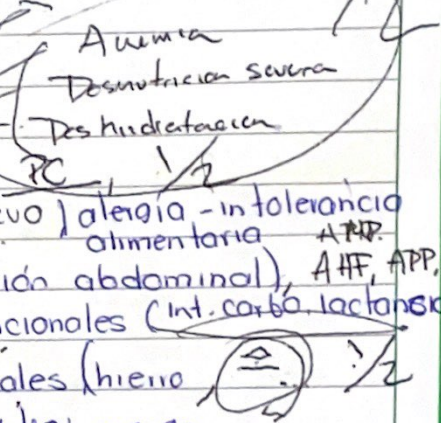 Anemia
Desnutricion severa
Deshidratacion
PC 1/2
uo) alergia - intolerancia
alimentaria
ión abdominal), AHF, APP,
cionales (int. carbo. lactansia
ales (hierro, 1/2